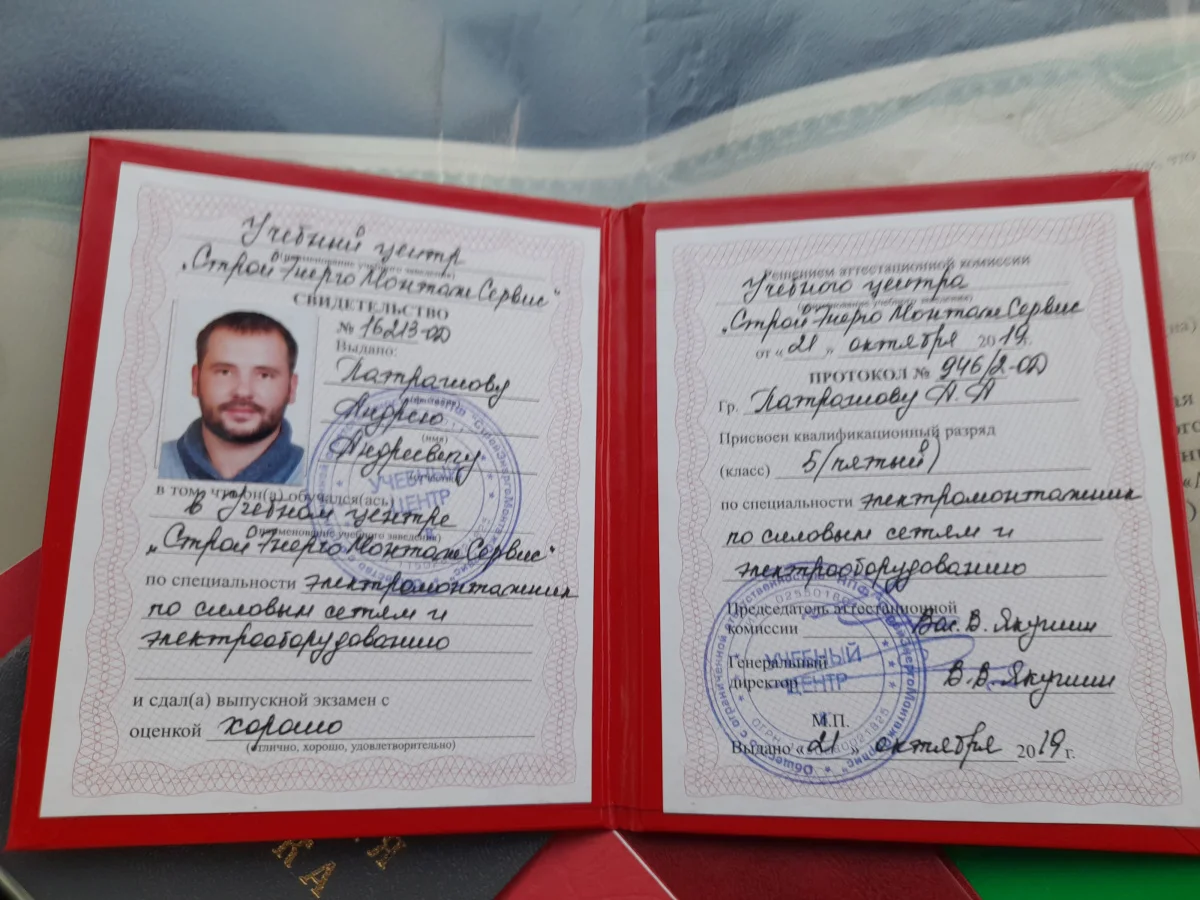 Учебный центр
"СтройЭнергоМонтажСервис"
(наименование учебного заведения)
СВИДЕТЕЛЬСТВО
№ 16213-ОД
Выдано:
Патрашову
(фамилия)
Андрею
(имя)
Андреевичу
в том, что он(а) обучался(ась)
в Учебном центре
(наименование учебного заведения)
"СтройЭнергоМонтажСервис"
по специальности электромонтажник
по силовым сетям и
электрооборудованию
и сдал(а) выпускной экзамен с
оценкой хорошо
(отлично, хорошо, удовлетворительно)
УЧЕБНЫЙ
ЦЕНТР
Решением аттестационной комиссии
Учебного центра
(наименование учебного заведения)
"СтройЭнергоМонтажСервис
от «21» октября 2019г.
ПРОТОКОЛ № 946/2-ОД
Гр. Патрашову А.А
Присвоен квалификационный разряд
(класс) 5(пятый)
по специальности электромонтажник
по силовым сетям и
электрооборудованию
Председатель аттестационной
комиссии Вас.В. Якушин
Генеральный
директор В.В. Якушин
УЧЕБНЫЙ
ЦЕНТР
М.П.
Выдано «21» октября 2019г.